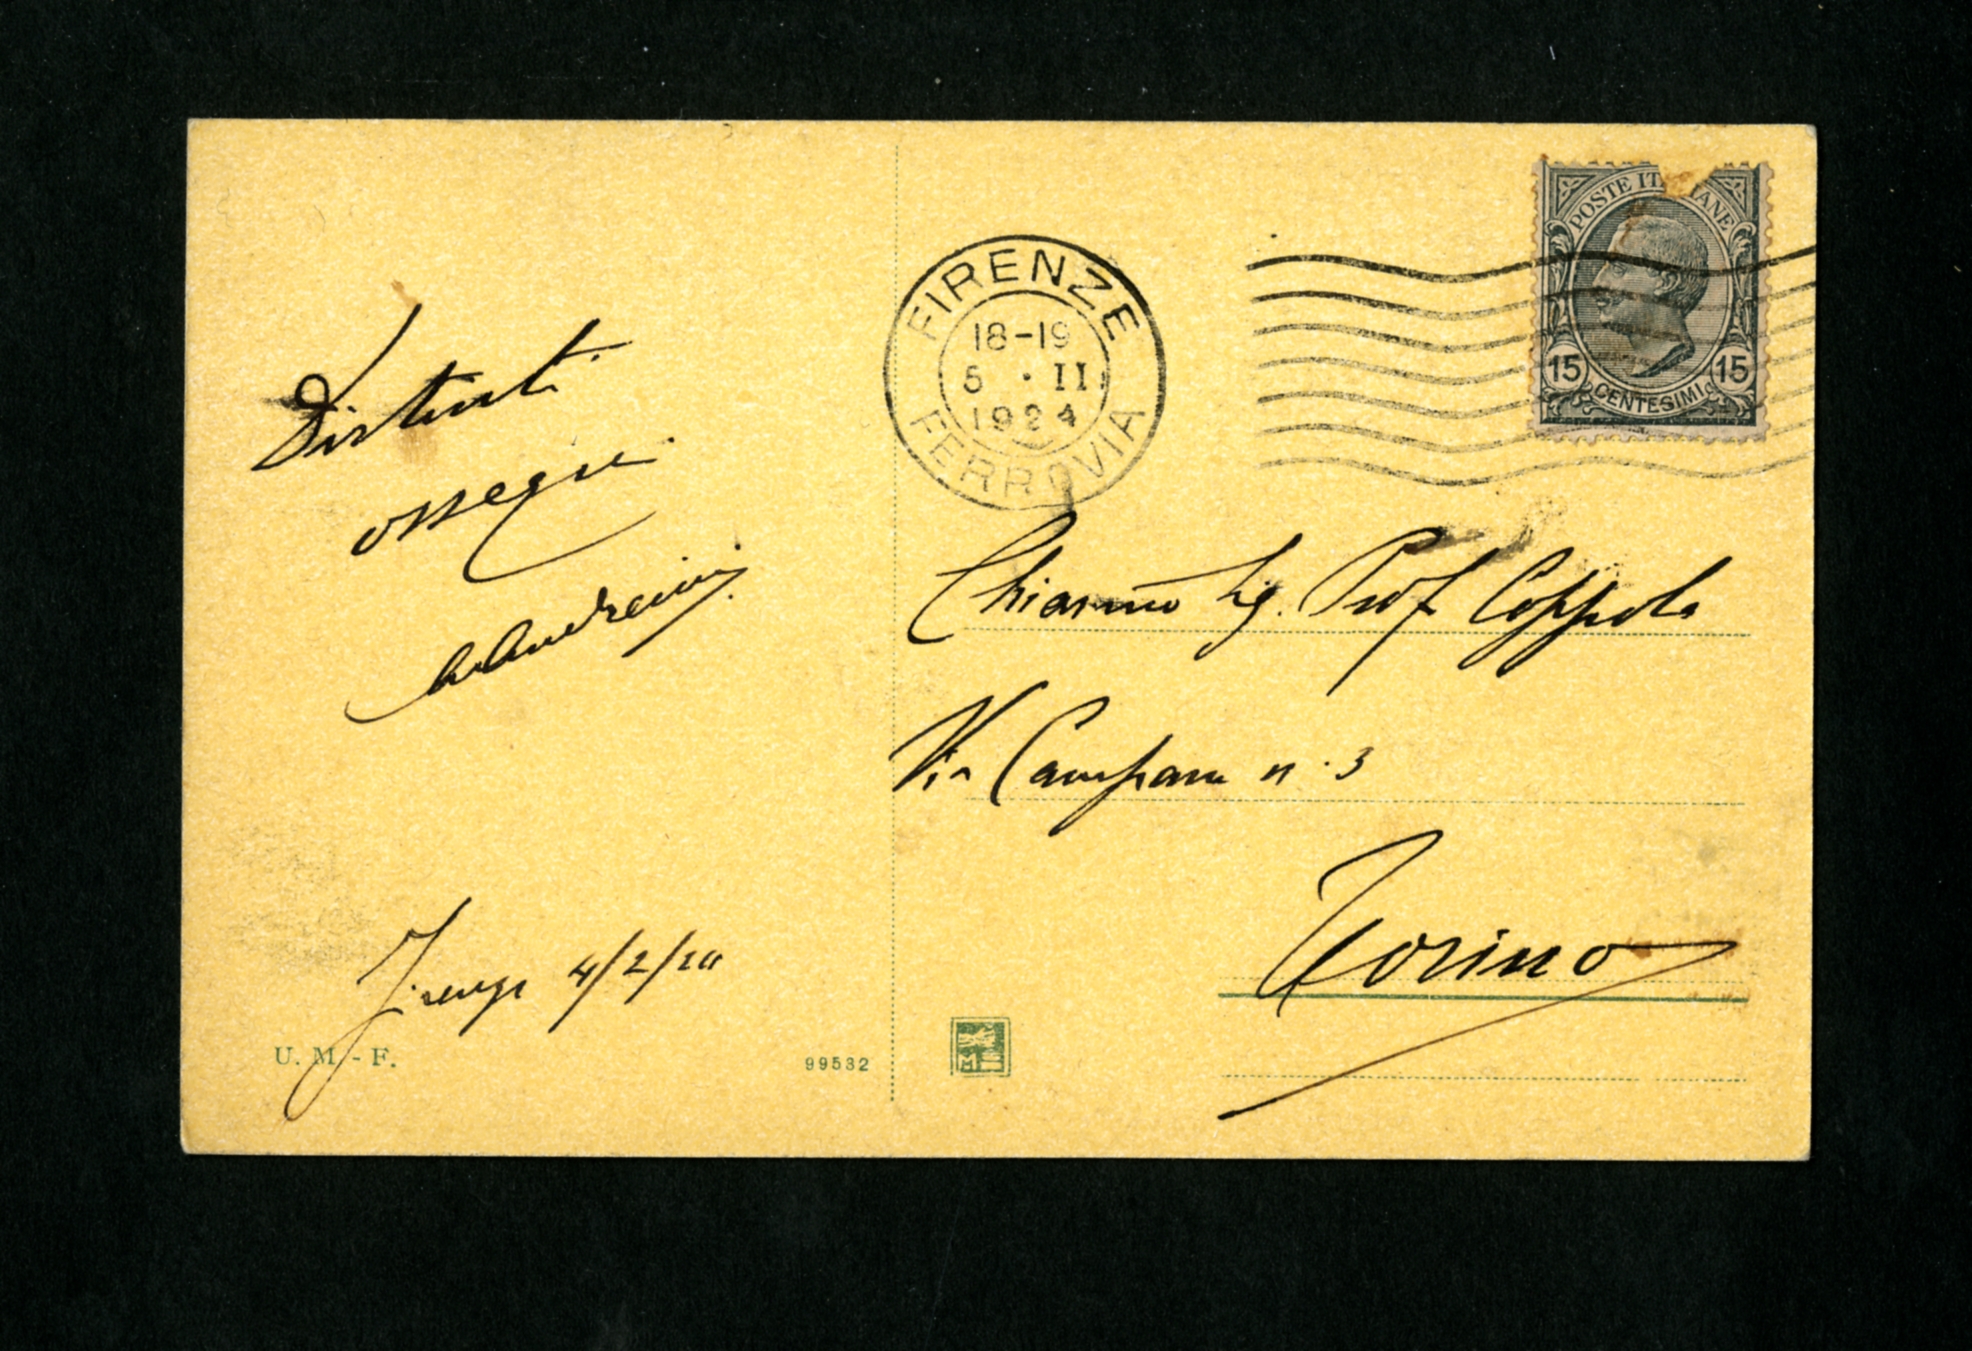 Distinti
ossequi
Firenze 4/2/24
U. M. - F.
99532
FIRENZE
18-19
5 · II
1924
FERROVIA
POSTE ITALIANE
15 15
CENTESIMI
Chiarmo Sig. Prof Coppola
Via Campana n. 3
Torino